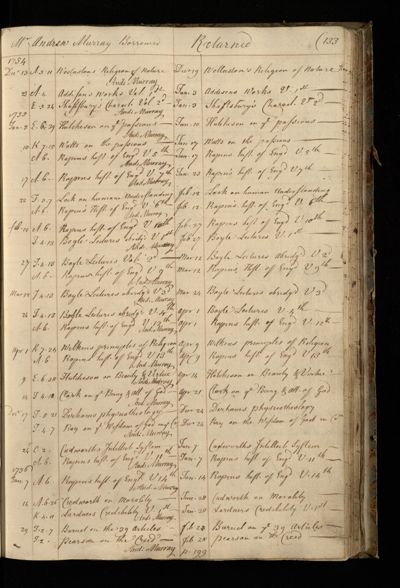 Mr Andrew Murray Borrowed Returned (133
1754
Decr 13 A 3 11 Woolastons Religion of Nature Decr 19 Wollaston's Religion of Nature
Andr Murray
A 2 Addisons Works Vol. 1st Jan 3 Addisons Works V. 1st
E 2 24 Shaftsbury's Charact. Vol 2d Jan 3 Shaftsbury's Charact. V 2d
Andr Murray
1755
Jan 3 E 6 29 Hutcheson on ye passions Jan 10 Hutcheson on ye passions
Andr Murray
10 K 7 10 Watts on the passions Jan 17 Watts on the passions
A 6 Rapins hist. of Engd V 5th Jan 17 Rapins hist. of Engd V 5th
Andr Murray
17 A 6 Rapins hist. of Engd V 7th Rapins hist. of Engd V 7th
Andr Murray
Lock on human Understanding Feb Lock on human Understanding
A 6 Rapins Hist. of Engd V. 6th Feb 12 Rapins hist. of Engd V 6th
Andr Murray
Feb 12 A 6 Rapins hist. of Engd V. 10th Feb 27 Rapins hist. of Engd V 10th
J 4 13 Boyle Lectures abridgd V 1st Feb 27 Boyle Lectures V. 1st
Andr Murray
27 J 4 13 Boyle Lectures Vol. 2d Mar 12 Boyle Lectures abridgd V 2d
A 6 Rapins hist. of Engd V 9th Mar 12 Rapins Hist. of Engd V 9th
Andr Murray
Mar 12 J 4 13 Boyle Lectures abridgd V 3d Mar 24 Boyle Lectures abridgd V 3d
Andr Murray
J 4 13 Boyle Lectures abridgd V. 4th Apr 1 Boyle Lectures V 4th
A 6 Rapins hist. of Engd V. 12th Apr 1 Rapins hist. of Engd V. 12th
Andr Murray
Apr 1 K 7 24 Wilkins principles of Religion Apr 9 Wilkins principles of Religion
A 6 Rapins hist. of Engd V 13th Apr 9 Rapins hist. of Engd V 13th
Andr Murray
9 E 6 28 Hutcheson on Beauty & Virtue Apr 14 Hutcheson on Beauty & Virtue
Andr Murray
14 J 4 10 Clark on ye Being & att. of God Apr 21 Clark on ye Being & att. of God
Andr Murray
Decr 17 J 2 21 Derhams physicotheology Decr 24 Derhams physicotheology
J 4 7 Ray on ye Wisdom of God in ye Cr Decr 24 Ray on the Wisdom of God in Cr
Andr Murray
24 C 2 Cudworths Intellect. System Jan 7 Cudworths Intellect. System
A 6 Rapins hist. of Engd V 11th Jan 7 Rapins hist. of Engd V 11th
Andr Murray
1756
Jan 7 A 6 Rapins hist. of Engd V 14th Jan 14 Rapins hist. of Engd V. 14th
Andr Murray
Cudworth on Morality Jan 28 Cudworth on Morality
K 4 11 Lardners Credibility V 1st Jan 28 Lardners Credibility V. 1st
Andr Murray
29 I 2 7 Burnet on the 39 Articles Feb 28 Burnet on ye 39 Articles
I 2 Pearson on the Creed Feb 28 Pearson on the Creed
Andr Murray p. 199